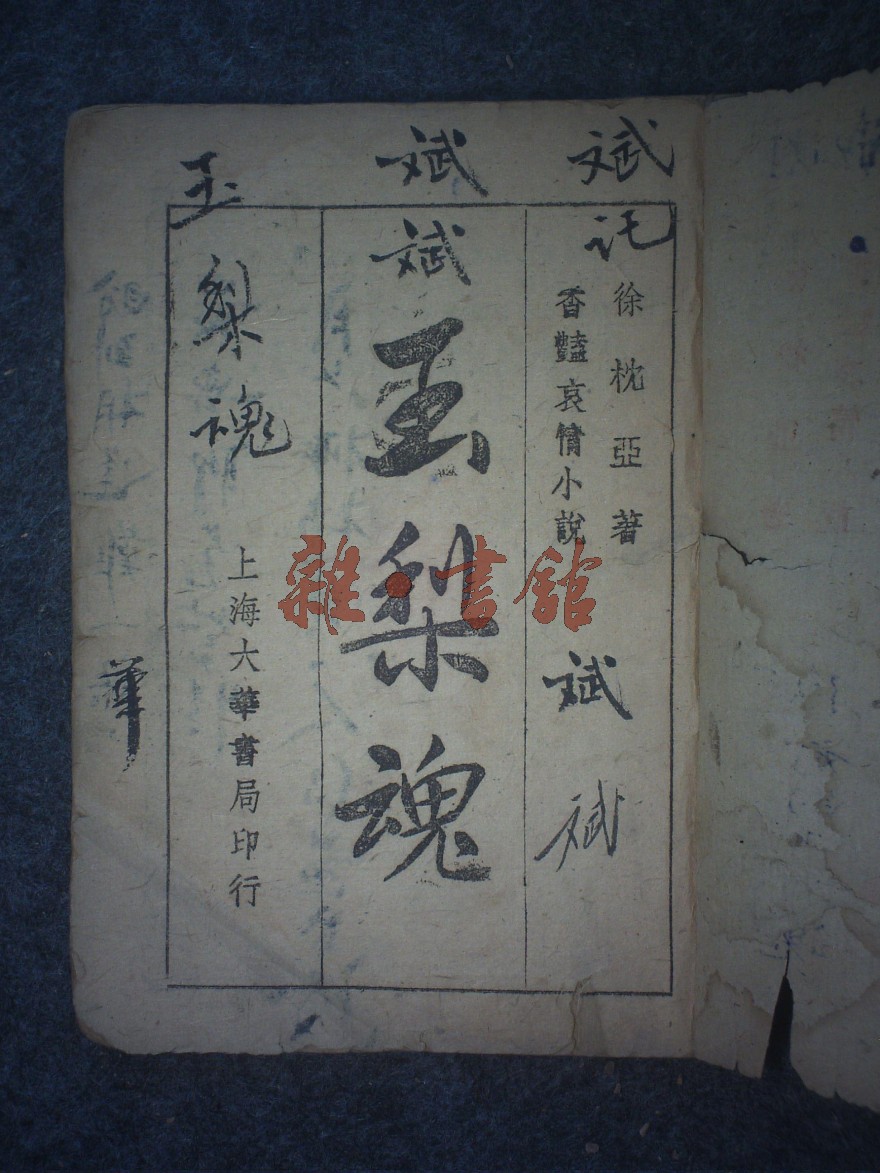 斌
記
徐枕亞著
香豔哀情小說
斌
斌
斌
斌
玉梨魂
上海大華書局印行
玉
梨
魂
華
雜·書館